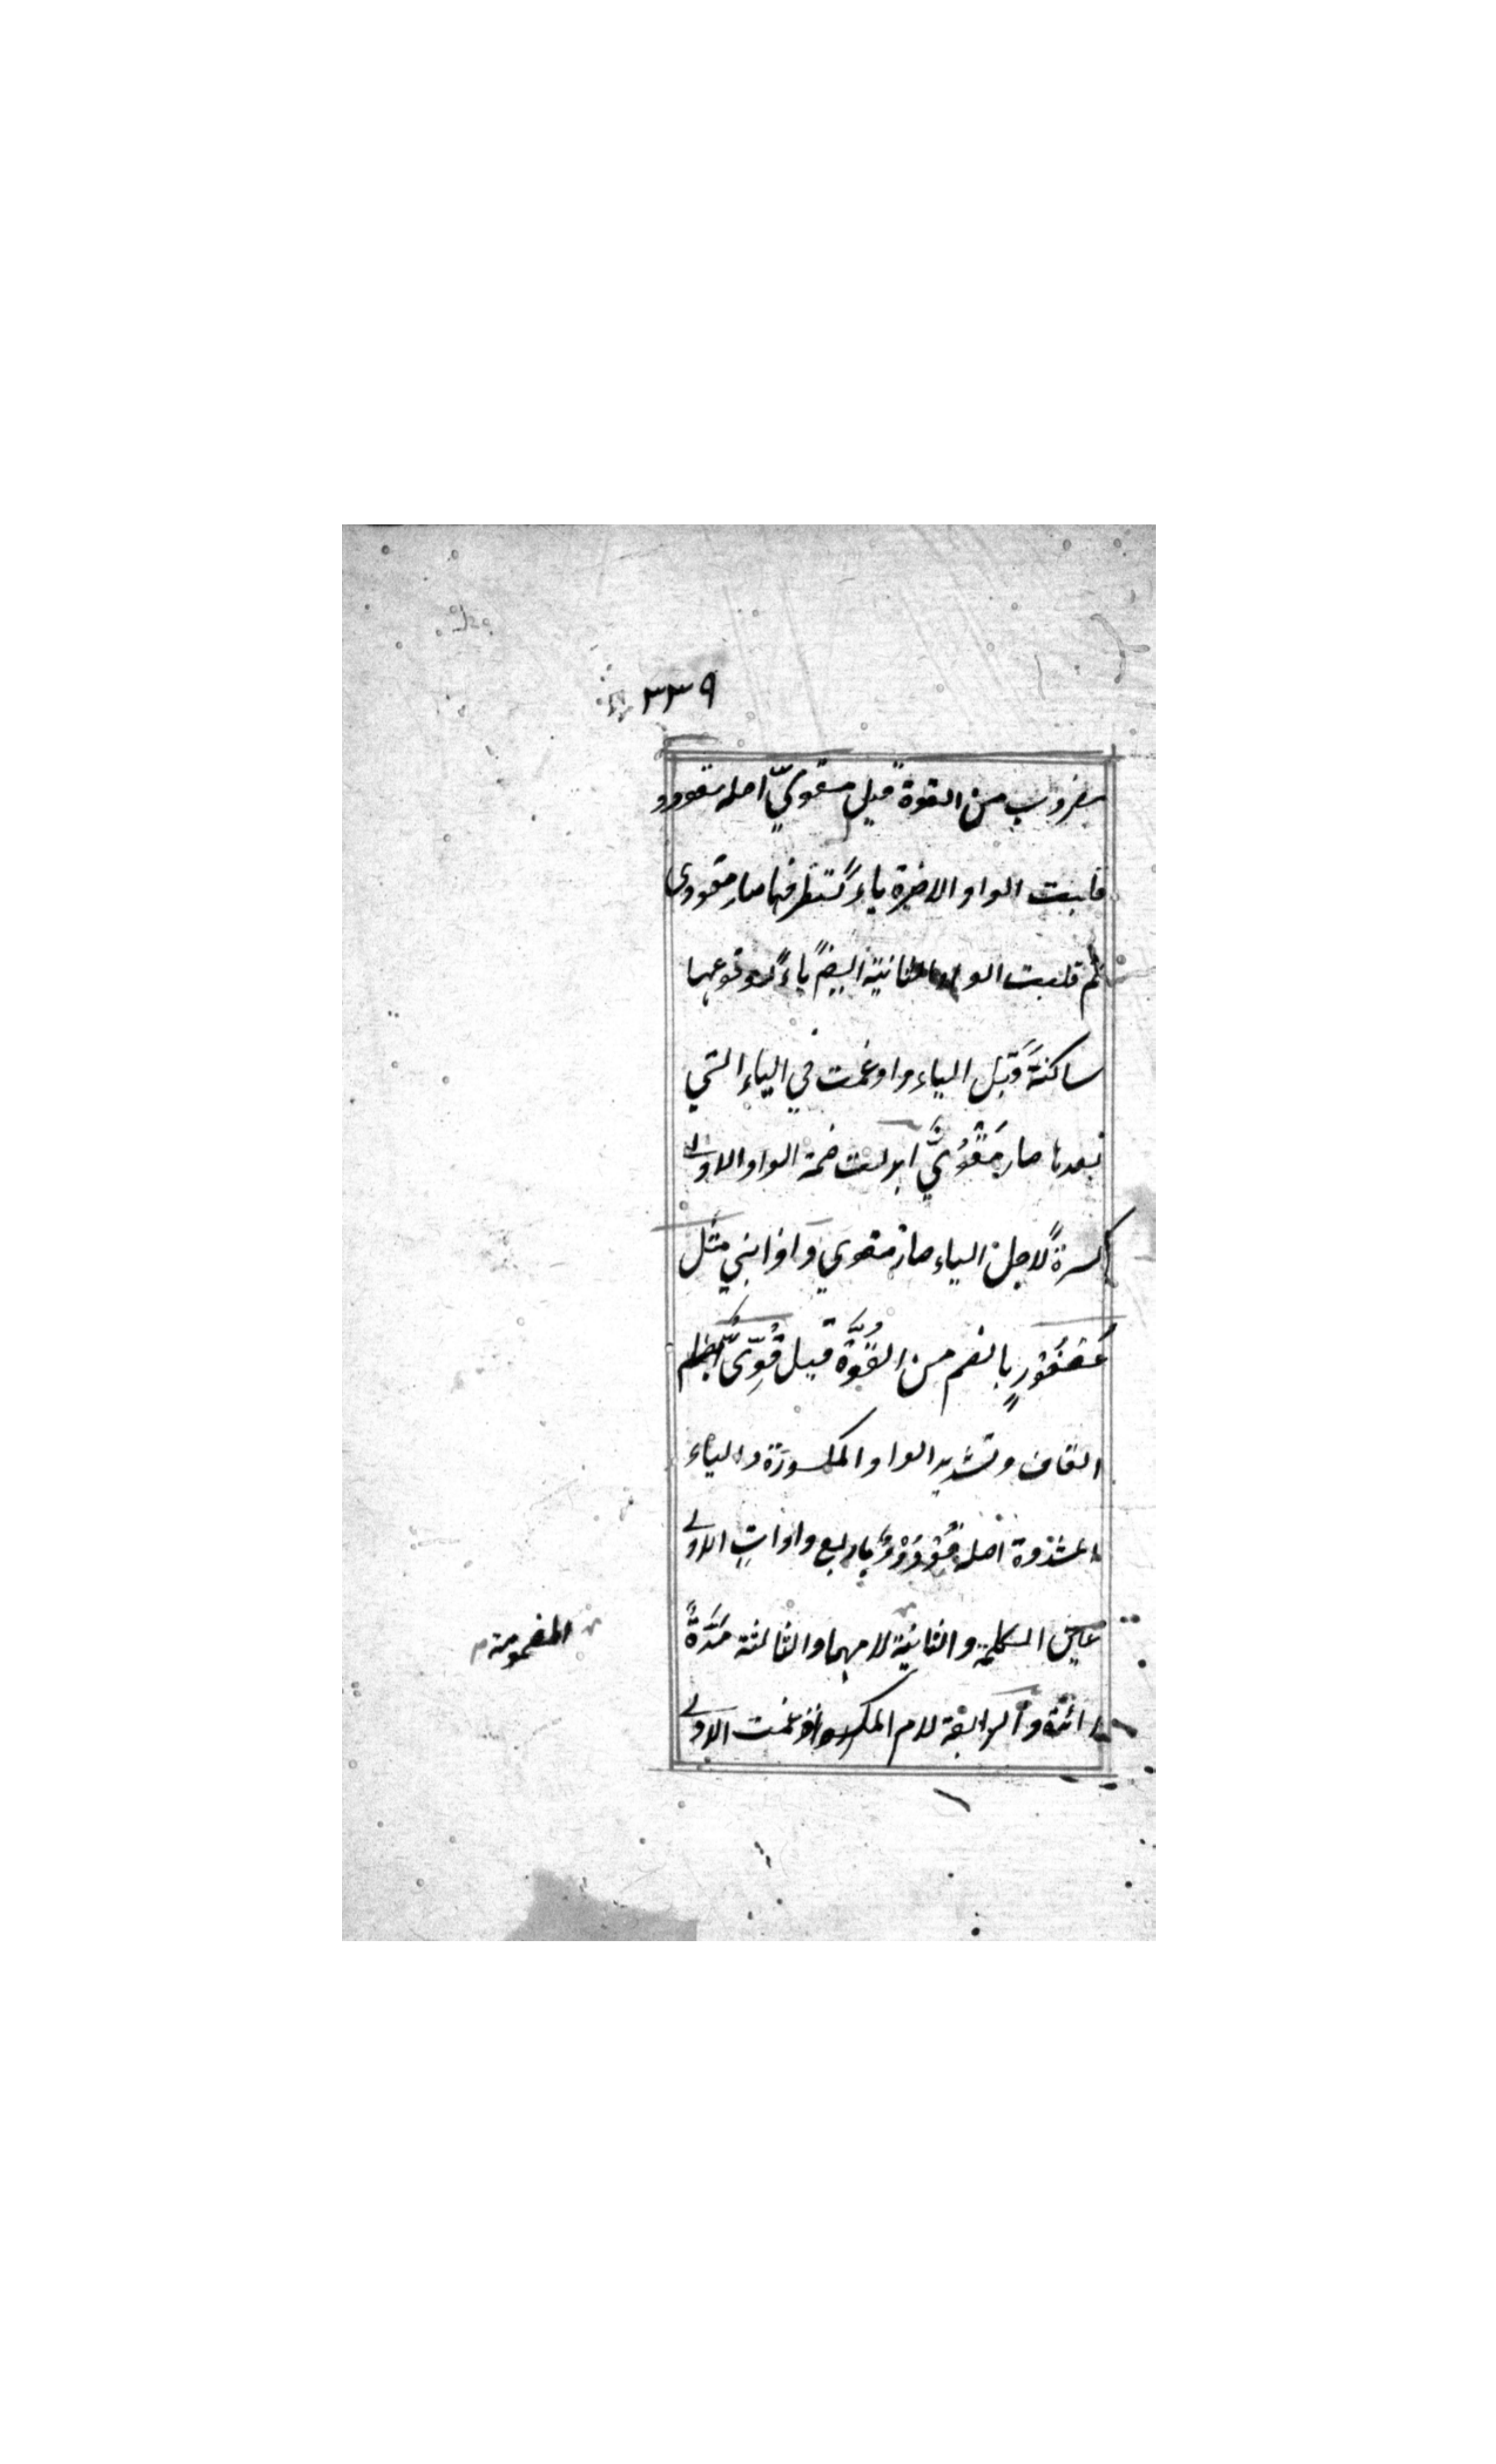 ٣٣٩
مضروب من القوة قيل مقويّ اصله مقووو
قلبت الواو الاخيرة ياءً لتطرفها صار مقووى
ثم قلبت الواو الثانية ايضًا ياءً لوقوعها
ساكنةً قبل الياء وادغمت في الياء التي
بعدها صار مَقْوُيٌّ ابدلت ضمة الواو الاولى
كسرةً لاجل الياء صار مقوي واذا بني مثل
عُصْفُوْرٍ بالضم من القُوَّة قيل قُوِّىٌّ بضم
القاف وتشديد الواو المكسورة والياء
المشددة اصله قُوْوُوْوٌ باربع واوات الاولى
عين الكلمة والثانية لامها والثالثة مَدَّةً
المضمومة
زائدة والرابعة لام المكرر ادغمت الاولى